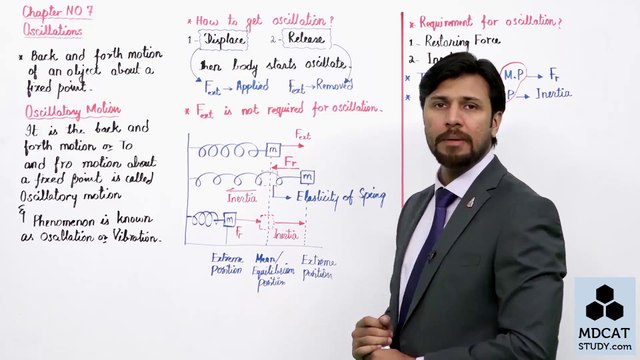 Chapter NO 7
Oscillations
* Back and forth motion
of an object about a
fixed point.
Oscillatory Motion
It is the back and
forth motion or To
and fro motion about
a fixed point is called
Oscillatory motion
&
Phenomenon is known
as Oscillation or Vibration.
* How to get oscillation?
1- Displace 2- Release
then body starts oscillate.
Fext → Applied Fext → Removed
* Fext is not required for oscillation.
m Fext
Fr
m
Inertia
Elasticity of Spring
m Fr Inertia
Extreme position
Mean/ Equilibrium position
Extreme position
* Requirement for oscillation?
1- Restoring Force
2- In
M.P → Fr
P → Inertia
MDCAT
STUDY.com